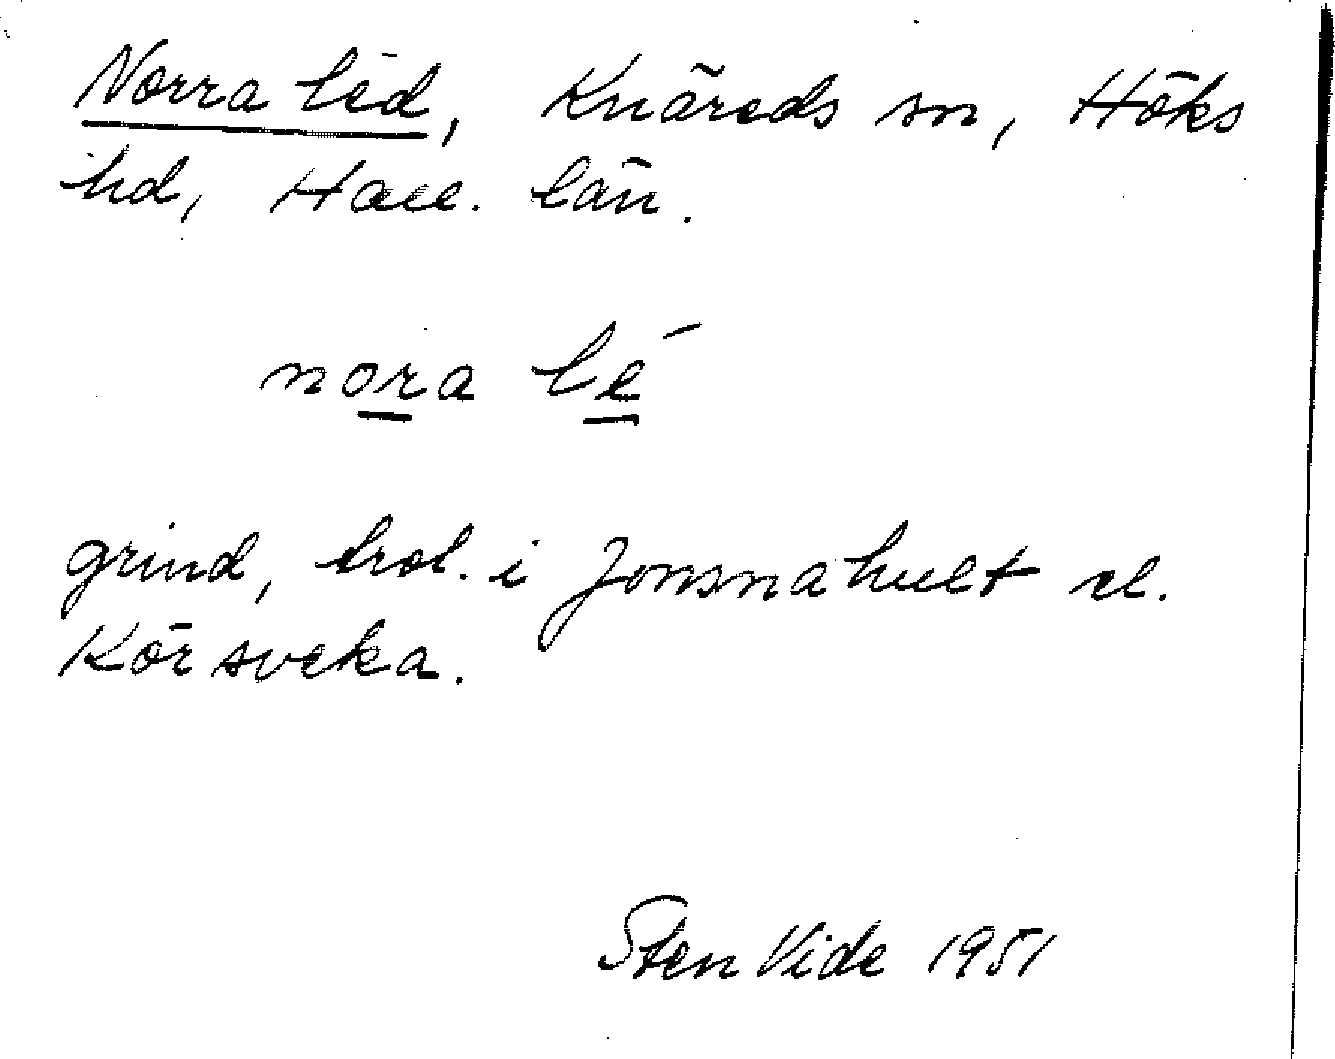 Norra led, Knäreds sn, Höks
hd, Hall. län.
nora lé
grind, trol. i Jonsnahult el.
Körsveka.
Sten Vide 1951